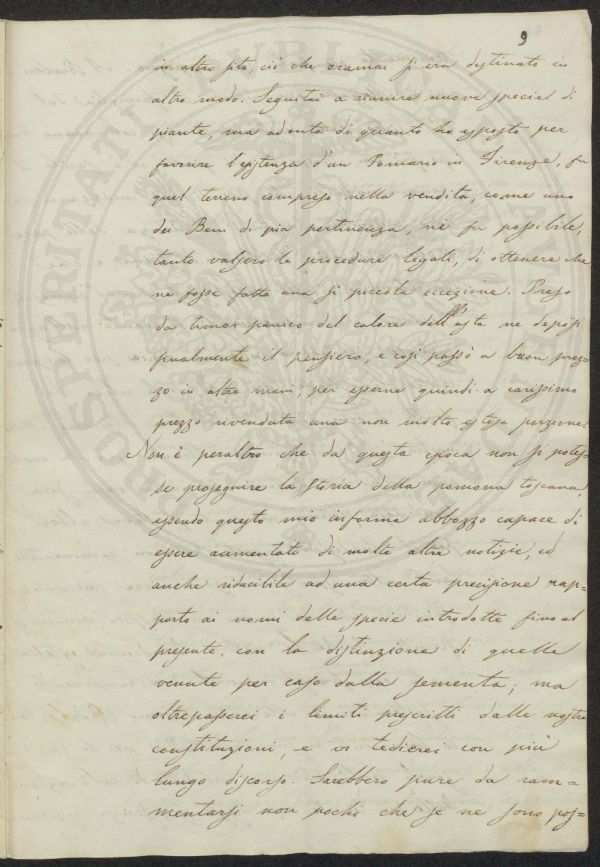 9
in altro sito, ciò che oramai si era destinato in
altro modo. Seguitai a riunire nuove specie di
piante, ma ad onta di quanto ho esposto per
favorire l'esistenza d'un Pomario in Firenze, fu
quel terreno compreso nella vendita, come uno
dei Beni di pia pertinenza, nè fu possibile,
tanto valsero le procedure legali, di ottenere che
ne fosse fatta una sì piccola eccezione. Preso
da timor panico del calore dell'asta ne deposi
finalmente il pensiero, e così passò a buon prez=
zo in altre mani, per esserne quindi a carissimo
prezzo rivenduta una non molto estesa porzione.
Non è peraltro che da questa epoca non si potes=
se proseguire la storia della pomona toscana,
essendo questo mio informe abbozzo capace di
essere aumentato di molte altre notizie, ed
anche riducibile ad una certa precisione rap=
porto ai nomi delle specie introdotte fino al
presente, con la distinzione di quelle
venute per caso dalla sementa; ma
oltrepasserei i limiti prescritti dalle nostre
constituzioni, e vi tedierei con più
lungo discorso. Sarebbero pure da ram=
mentarsi non pochi che se ne sono pos=
PROSPERITATI PUBLI